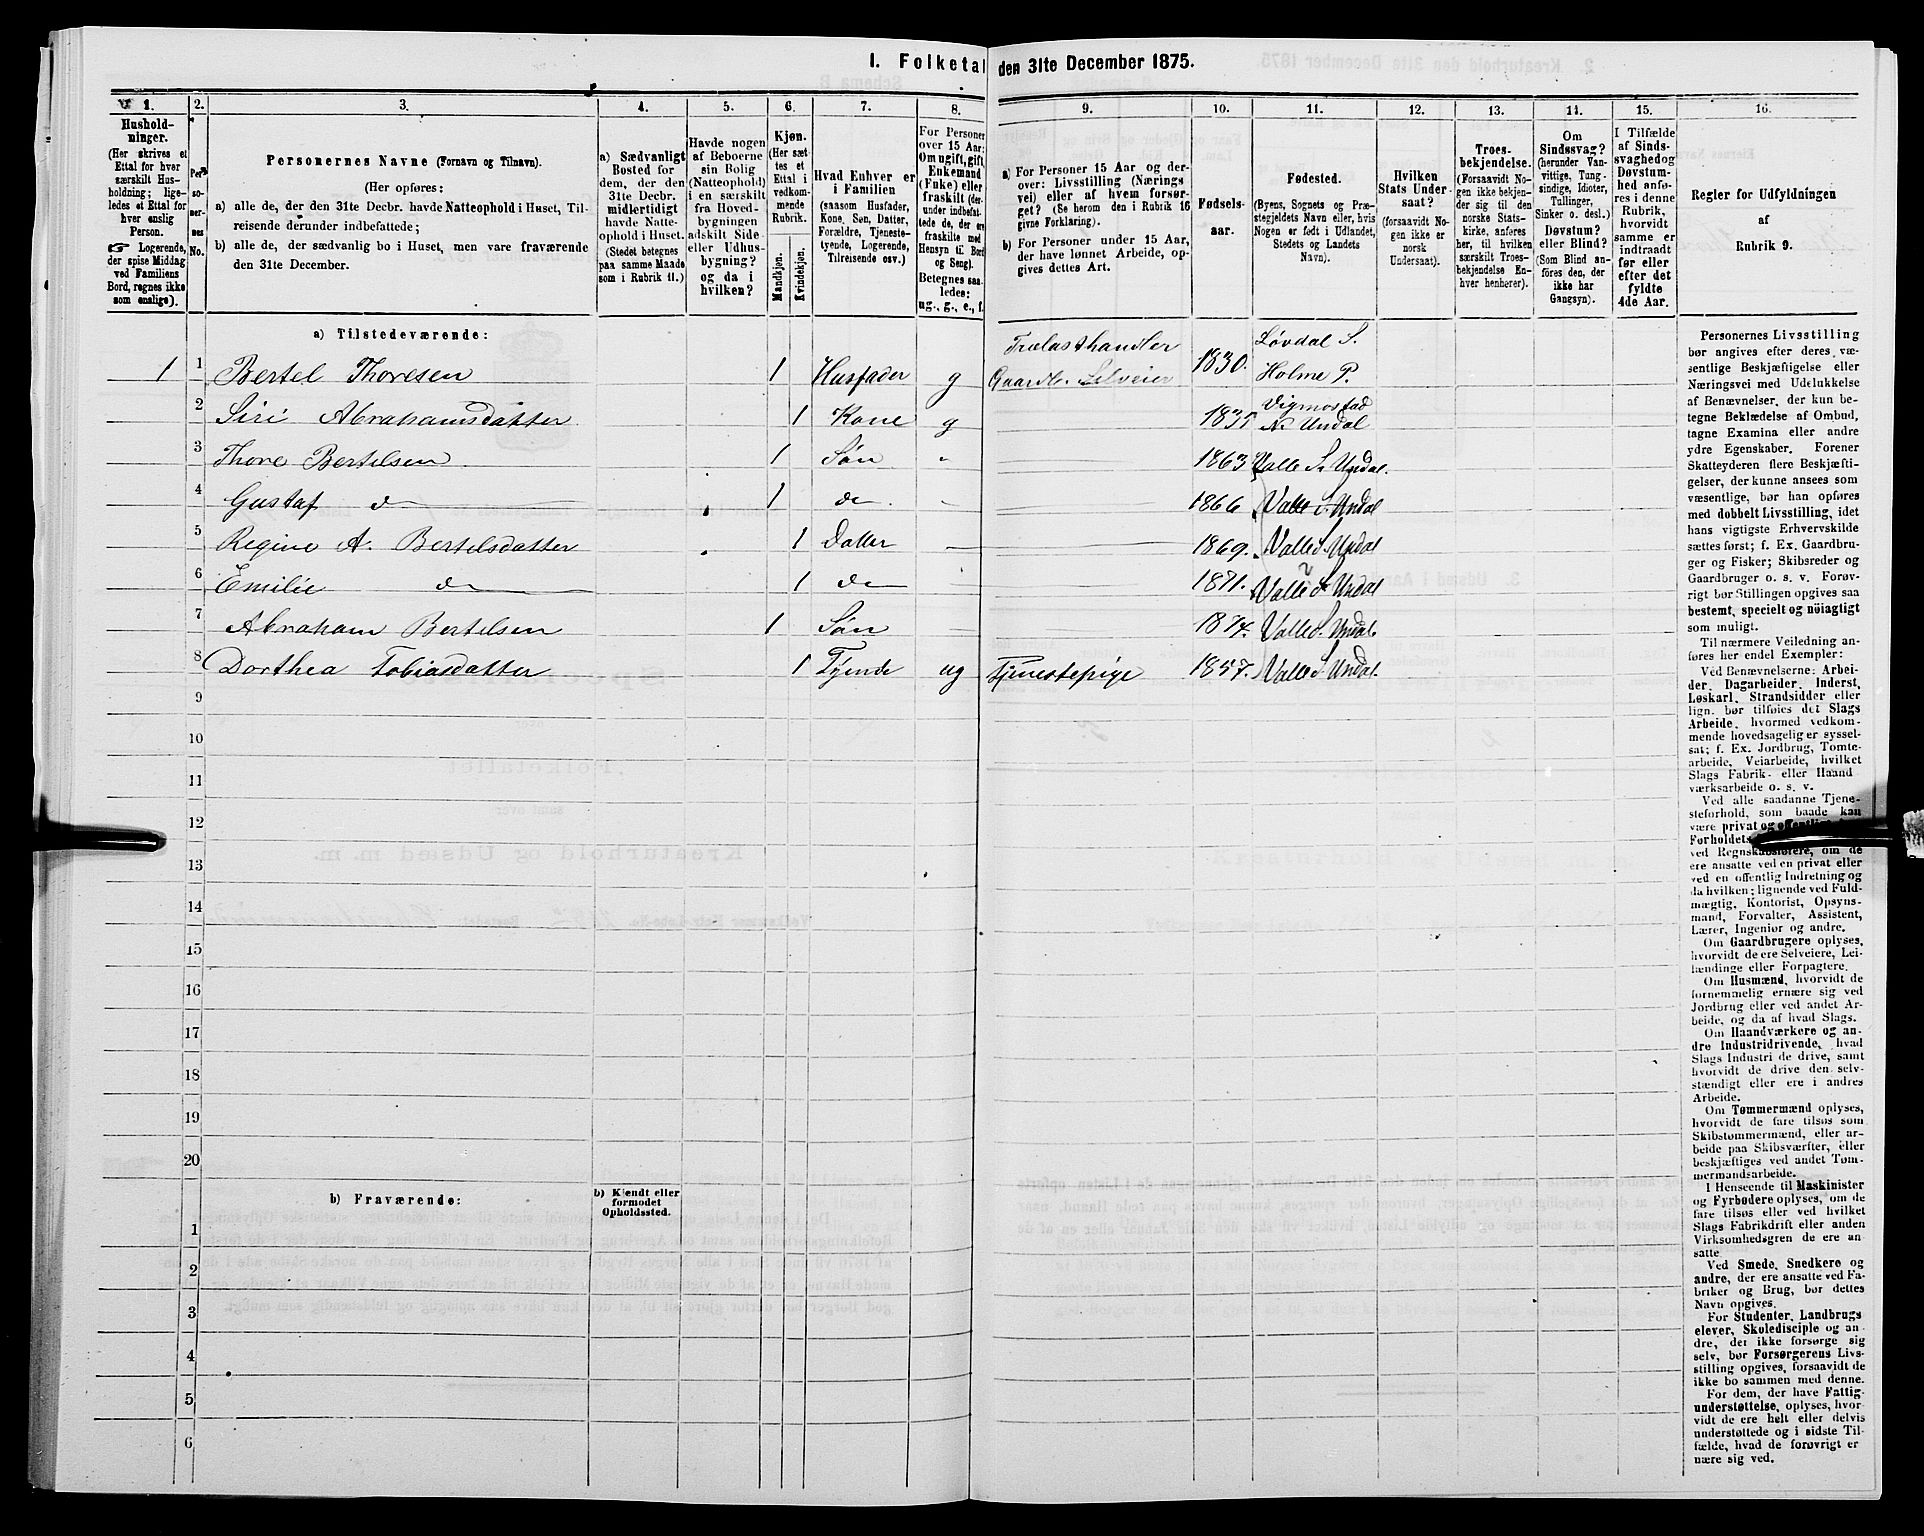 I. Folketal den 31te December 1875.
1.
Hushold-
ninger.
(Her skrives et
Ettal for hver
særskilt Hus-
holdning; lige-
ledes et Ettal for
hver enslig
Person.
Logerende,
der spise Middag
ved Familiens
Bord, regnes ikke
som enslige).
2.
Per-
so-
ner-
nes
No.
3.
Personernes Navne (Fornavn og Tilnavn).
(Her opføres:
a) alle de, der den 31te Decbr. havde Natteophold i Huset, Til-
reisende derunder indbefattede;
b) alle de, der sædvanlig bo i Huset, men vare fraværende
den 31te December.
4.
a) Sædvanligt
Bosted for
dem, der den
31te Decbr.
midlertidigt
havde Natte-
ophold i Huset.
(Stedet betegnes
paa samme Maade
som i Rubrik 11.)
5.
Havde nogen
af Beboerne
sin Bolig
(Natteophold)
i en særskilt
fra Hoved-
bygningen
adskilt Side-
eller Udhus-
bygning?
og da i
hvilken?
6.
Kjøn.
(Her sæt-
tes et
Ettal i
vedkom-
mende
Rubrik.
Mandkjøn.
Kvindekjøn.
7.
Hvad Enhver er
i Familien
(saasom Husfader,
Kone, Søn, Datter,
Forældre, Tjeneste-
tyende, Logerende,
Tilreisende osv.)
8.
For Personer
over 15 Aar:
Om ugift, gift,
Enkemand
(Enke) eller
fraskilt (der-
under indbefat-
tede de, der ere
fraskilte med
Hensyn til Bord
og Seng).
Betegnes saa-
ledes:
ug., g., e., f.
9.
a) For Personer 15 Aar og der-
over: Livsstilling (Nærings
vei) eller af hvem forsør-
get? (Se herom den i Rubrik 16
givne Forklaring).
b) For Personer under 15 Aar,
der have lønnet Arbeide, op-
gives dettes Art.
10.
Fødsels-
aar.
11.
Fødested.
(Byens, Sognets og Præ-
stegjeldets Navn eller, hvis
Nogen er født i Udlandet,
Stedets og Landets
Navn).
12.
Hvilken
Stats Under-
saat?
(forsaavidt No-
gen ikke er
norsk
Undersaat).
13.
Troes-
bekjendelse.
(Forsaavidt No-
gen ikke bekjen-
der sig til den
norske Stats-
kirke, anfø-
res her, til hvilken
særskilt Troes-
bekjendelse En-
hver henhører).
14.
Om
Sindssvag?
(herunder Van-
vittige, Tung-
sindige, Idioter,
Tullinger,
Sinker o. desl.)
Døvstum?
eller Blind?
(Som Blind an-
føres den, der
ikke har
Gangsyn).
15.
I Tilfælde
af Sinds-
svaghed og
Døvstum-
hed anfø-
res i denne
Rubrik,
hvorvidt
samme er
indtraadt
før eller
efter det
fyldte
4de Aar.
16.
Regler for Udfyldningen
af
Rubrik 9.
a) Tilstedeværende:
1 1 Bertel Thoresen 1 Husfader g Trælasthandler Gaardb. Selveier 1830. Løvdal S. Holme P.
2 Siri Abrahamsdatter 1 Kone g 1835 Vigmostad N. Undal
3 Thore Bertelsen 1 Søn - 1863 Valle S. Undal.
4 Gustaf do 1 do. - 1866 Valle S. Undal
5 Regine A. Bertelsdatter 1 Datter - 1869. Valle S. Undal
6 Emilie do 1 do 1871. Valle S. Undal
7 Abraham Bertelsen 1 Søn 1874. Valle S. Undal
8 Dorthea Tobiasdatter 1 Tyende ug Tjenestepige 1857. Valle S. Undal.
9
10
11
12
13
14
15
16
17
18
19
20
b) Fraværende:
b) Kjendt eller
formodet
Opholdssted.
1
2
3
4
5
6
Personernes Livsstilling
bør angives efter deres væ-
sentlige Beskjæftigelse eller
Næringsvei med Udelukkelse
af Benævnelser, der kun be-
tegne Beklædelse af Ombud,
tagne Examina eller andre
ydre Egenskaber. Forener
Skatteyderen flere Beskjæfti-
gelser, der kunne ansees som
væsentlige, bør han opføres
med dobbelt Livsstilling, idet
hans vigtigste Erhvervskilde
sættes først; f. Ex. Gaardbru-
ger og Fisker; Skibsreder og
Gaardbruger o. s. v. Forøv-
rigt bør Stillingen opgives saa
bestemt, specielt og nöiagtigt
som muligt.
Til nærmere Veiledning an-
føres her endel Exempler:
Ved Benævnelserne: Arbei-
der, Dagarbeider, Inderst,
Løskarl, Strandsidder eller
lign. bør tilføies det Slags
Arbeide, hvormed vedkom-
mende hovedsagelig er syssel-
sat; f. Ex. Jordbrug, Tomte-
arbeide, Veiarbeide, hvilket
Slags Fabrik- eller Haand-
værksarbeide o. s. v.
Ved alle saadanne Tjene-
steforhold, som baade kan
være privat og offentligt,
Forholdets
ved Regnskabsførere, om de
ere ansatte ved en privat eller
ved en offentlig Indretning og
da hvilken; lignende ved Fuld-
mægtig, Kontorist, Opsyns-
mand, Forvalter, Assistent,
Lærer, Ingeniør og andre.
Om Gaardbrugere oplyses,
hvorvidt de ere Selveiere, Lei-
lændinge eller Forpagtere.
Om Husmænd, hvorvidt de
fornemmelig ernære sig ved
Jordbrug eller ved andet Ar-
beide, og da af hvad Slags.
Om Haandværkere og an-
dre Industridrivende, hvad
Slags Industri de drive, samt
hvorvidt de drive den selv-
stændigt eller ere i andres
Arbeide.
Om Tømmermænd oplyses,
hvorvidt de fare tilsøs som
Skibstømmermænd, eller ar-
beide paa Skibsværfter, eller
beskjæftiges ved andet Tøm-
mermandsarbeide.
I Henseende til Maskinister
og Fyrbødere oplyses, om de
fare tilsøs eller ved hvilket
Slags Fabrikdrift eller anden
Virksomhedsgren de ere an-
satte.
Ved Smede, Snedkere og
andre, der ere ansatte ved Fa-
briker og Brug, bør dettes
Navn opgives.
For Studenter, Landbrugs-
elever, Skoledisciple og an-
dre, der ikke forsørge sig
selv, bør Forsørgerens Livs-
stilling opgives, forsaavidt de
ikke bo sammen med denne.
For dem, der have Fattig-
understøttelse, oplyses, hvor-
vidt de ere helt eller delvis
understøttede og i sidste Til-
fælde, hvad de forøvrigt er-
nære sig ved.